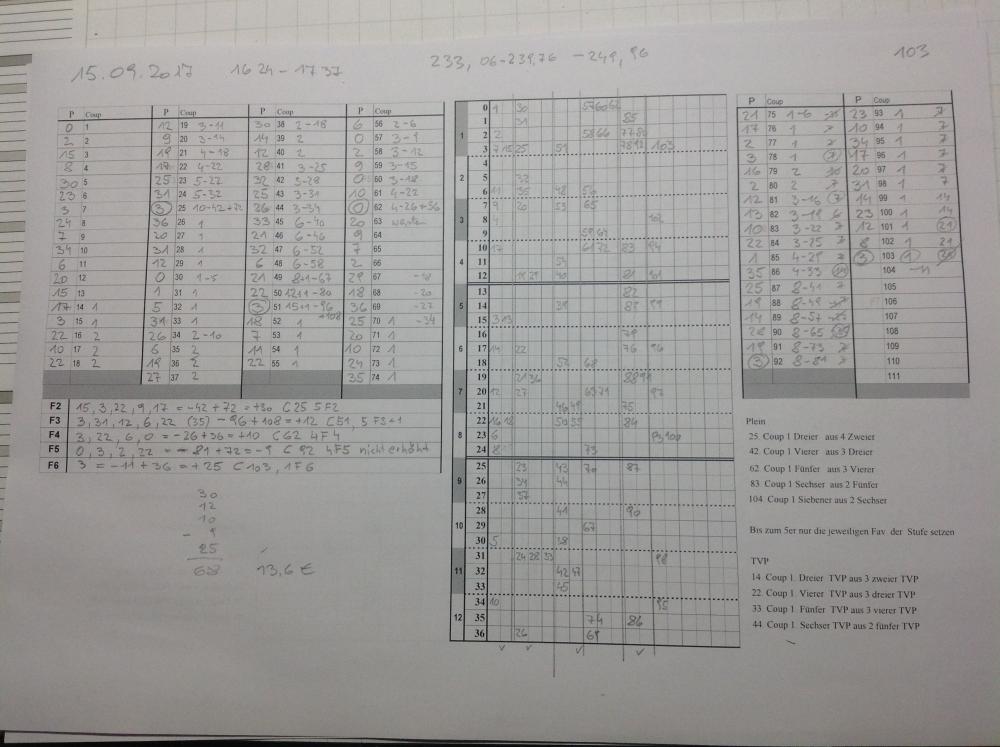 15.09.2017 1624-1737 233,06-239,76 -249,96 103
P Coup P Coup P Coup P Coup
0 1 12 19 3-11 30 38 2-18 6 56 2-6
2 2 9 20 3-14 14 39 2 0 57 3-9
15 3 19 21 4-18 12 40 2 2 58 3-12
8 4 18 22 4-22 28 41 3-25 9 59 3-15
30 5 25 23 5-22 32 42 3-28 0 60 3-18
23 6 31 24 5-32 25 43 3-31 10 61 4-22
3 7 3 25 10-42+72 26 44 3-34 0 62 4-26+36
24 8 36 26 1 33 45 6-40 20 63 warten
7 9 20 27 1 21 46 6-46 9 64
34 10 31 28 1 32 47 6-52 7 65
6 11 12 29 1 6 48 6-58 2 66
20 12 0 30 1-5 21 49 8+1-67 29 67 -18
15 13 1 31 1 22 50 12+1-80 18 68 -20
17 14 1 5 32 1 3 51 15+1-96 +108 36 69 -27
3 15 1 31 33 1 18 52 1 25 70 1 -34
22 16 2 26 34 2-10 7 53 1 20 71 1
10 17 2 6 35 2 11 54 1 10 72 1
22 18 2 19 36 2 22 55 1 24 73 1
27 37 2 35 74 1
F2 15, 3, 22, 9, 17 = -42 + 72 = +30 C25 5F2
F3 3, 31, 12, 6, 22 (35) - 96 + 108 = +12 C51, 5 F3+1
F4 3, 22, 6, 0 = -26 + 36 = +10 C62 4F4
F5 0, 3, 2, 22 = - 81 + 72 = -9 C 92 4F5 nicht erhöht
F6 3 = -11 + 36 = +25 C103, 1F6
30
12
10
- 9
25
68 13,6 €
0 1 30 576062
1 31 85
1 2 2 5866 7780
3 7 15 25 51 7892 103
4
2 5 32
6 11 35 48 56
7 9 20 53 65
3 8 4 102
9 59 64
10 17 6172 83 94
4 11 54
12 1929 40 81 101
13 82
5 14 39 88 99
15 3 13
16 79
6 17 14 22 76 96
18 52 68
19 2136 8891
7 20 12 27 6371 97
21 4649 75
22 1618 5055 84
8 23 6 93,100
24 8 73
25 23 43 70 87
9 26 34 44
27 37
28 41 90
10 29 67
30 5 38
31 24 28 33 98
11 32 42 47
33 45
34 10 95
12 35 74 86
36 26 69
P Coup P Coup
21 75 1-6 23 93 1 7
17 76 1 7 10 94 1 7
2 77 1 7 34 95 1 7
3 78 1 7 17 96 1 7
16 79 2 20 97 1 7
2 80 2 7 31 98 1 7
12 81 3-16 14 99 1 14
13 82 3-19 6 23 100 1 14
10 83 3-22 7 12 101 1 21
22 84 3-25 8 102 1 21
1 85 4-29 3 103 9
35 86 4-33 104 -11
25 87 8-41 7 105
19 88 8-49 106
14 89 8-57 107
28 90 8-65 108
19 91 8-73 7 109
3 92 8-81 7 110
111
Plein
25. Coup 1 Dreier aus 4 Zweier
42 Coup 1 Vierer aus 3 Dreier
62 Coup 1 Fünfer aus 3 Vierer
83 Coup 1 Sechser aus 2 Fünfer
104 Coup 1 Siebener aus 2 Sechser
Bis zum 5er nur die jeweiligen Fav der Stufe setzen
TVP
14 Coup 1 Dreier TVP aus 3 zweier TVP
22 Coup 1 Vierer TVP aus 3 dreier TVP
33 Coup 1 Fünfer TVP aus 3 vierer TVP
44 Coup 1 Sechser TVP aus 2 fünfer TVP